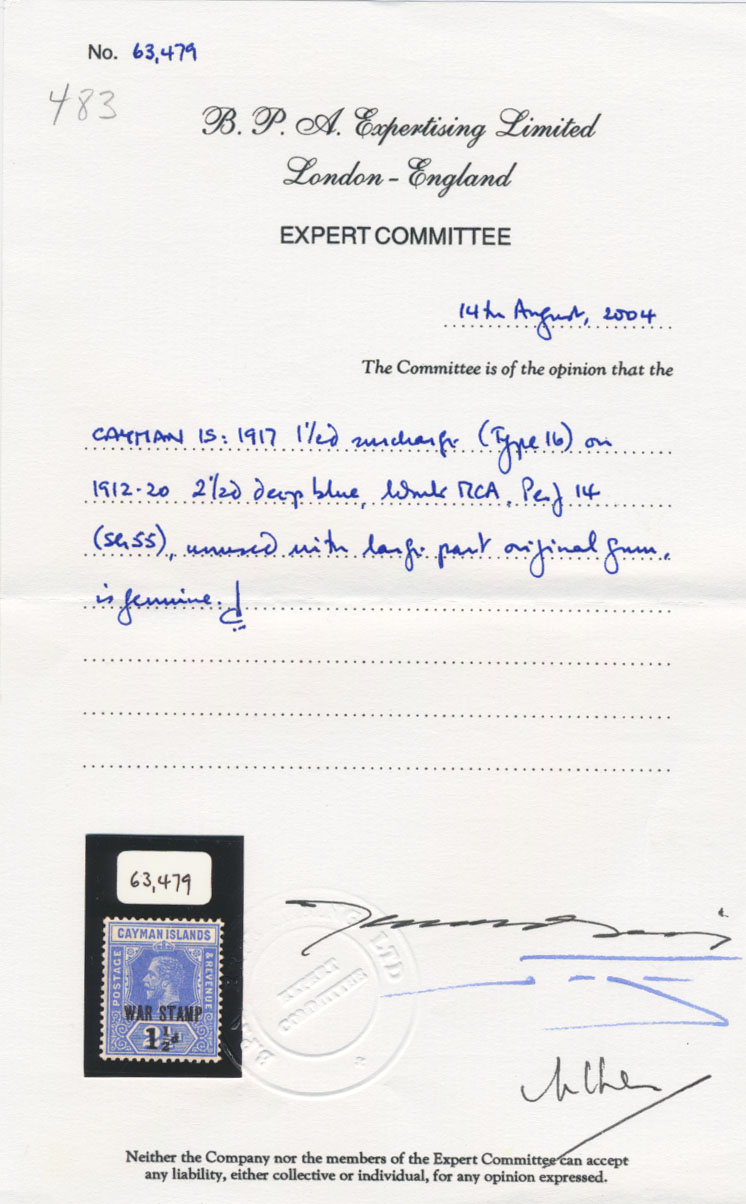 No. 63,479
483
B. P. A. Expertising Limited
London - England
EXPERT COMMITTEE
14th August, 2004
The Committee is of the opinion that the
CAYMAN IS: 1917 1½d surcharge (Type 16) on
1912-20 2½d deep blue, Wmk MCA, Perf 14
(SG 55), unused with large part original gum,
is genuine.
63,479
CAYMAN ISLANDS
POSTAGE
& REVENUE
WAR STAMP
1½d
EXPERT
COMMITTEE
LTD
Neither the Company nor the members of the Expert Committee can accept
any liability, either collective or individual, for any opinion expressed.